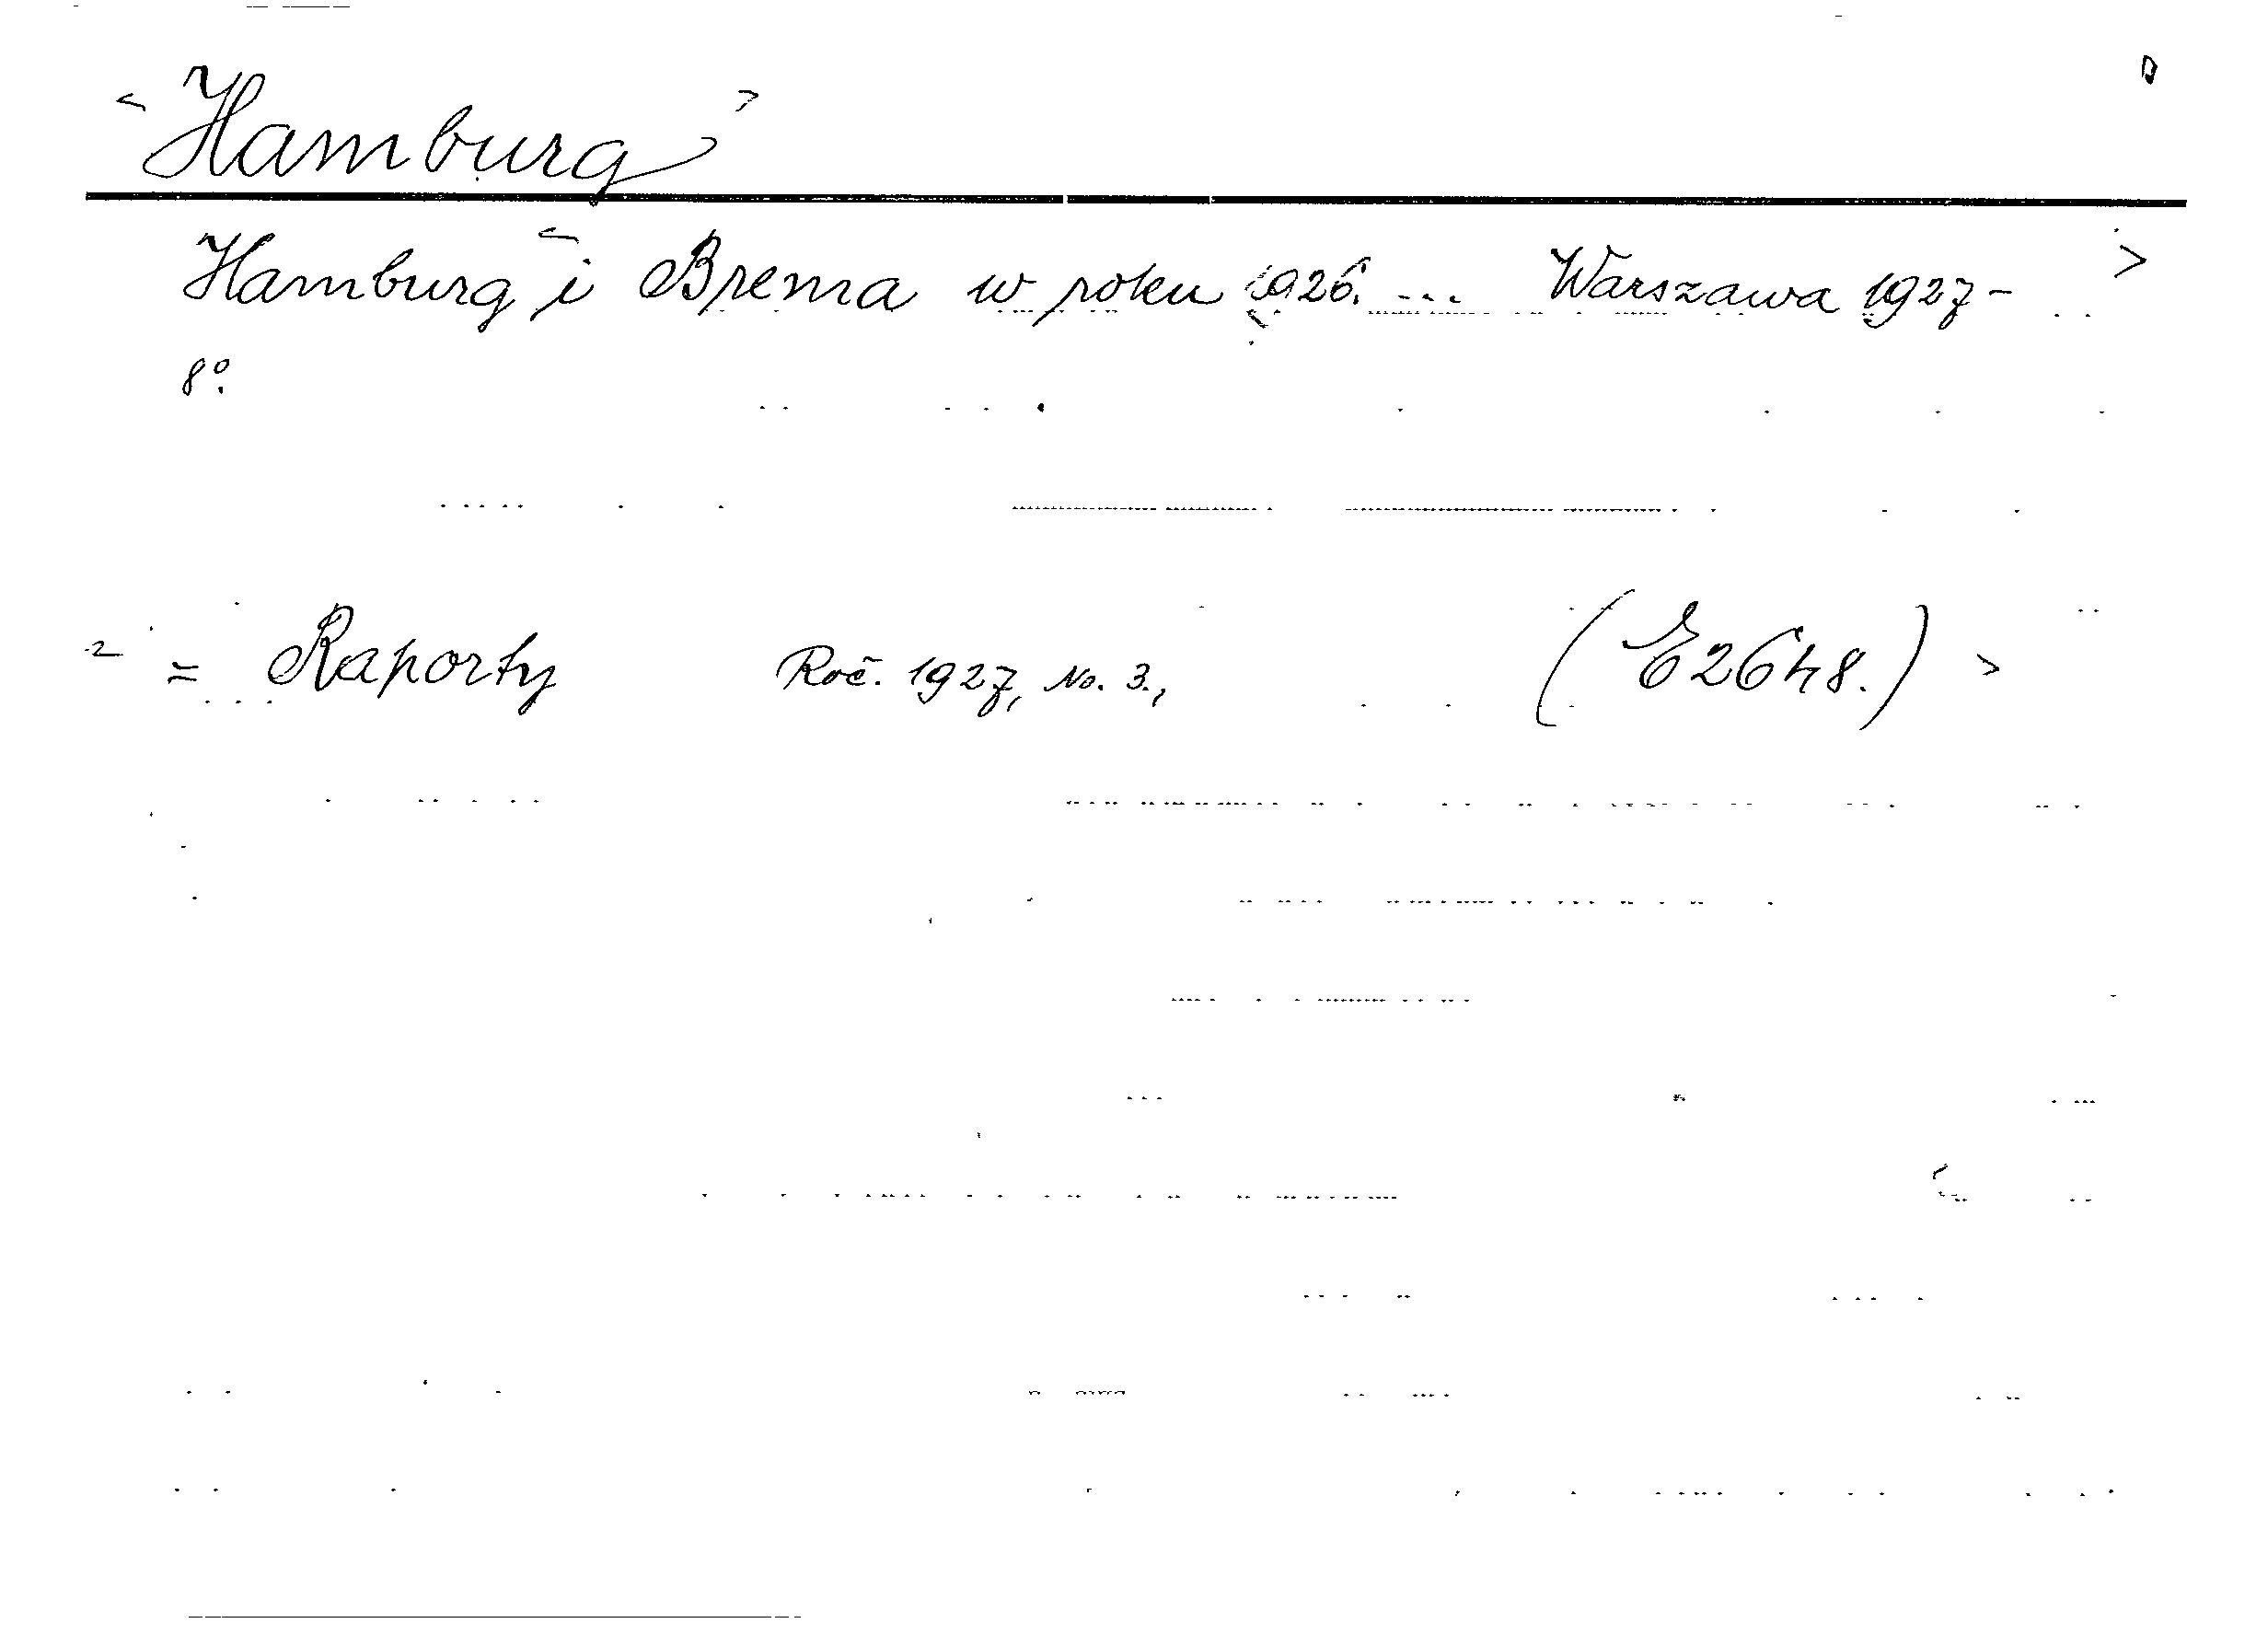 Hamburg
Hamburg i Brema w roku 1926. ... Warszawa 1927-
8°.
= Raporty Roč. 1927, No. 3., (E2648.)